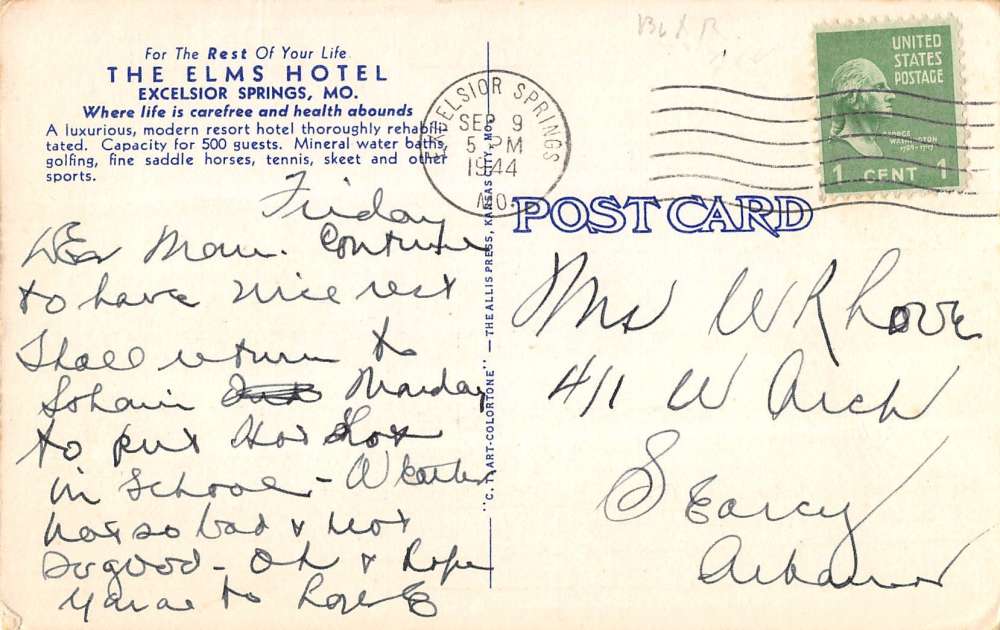 For The Rest Of Your Life
THE ELMS HOTEL
EXCELSIOR SPRINGS, MO.
Where life is carefree and health abounds
A luxurious, modern resort hotel thoroughly rehabili-
tated. Capacity for 500 guests. Mineral water baths,
golfing, fine saddle horses, tennis, skeet and other
sports.
EXCELSIOR SPRINGS
SEP 9
5 PM
1944
MO.
UNITED
STATES
POSTAGE
GEORGE
WASHINGTON
1789-1797
1 CENT 1
POST CARD
"C. T. ART-COLORTONE" — THE ALLIS PRESS, KANSAS CITY, MO.
Friday
Dear Mom. Continue
to have nice rest
Shall return to
Monday
to put
in School - Weather
not so bad & not
So good - OK & hope
you are to
Mrs W R Love
411 W Arch
Searcy
Arkansas